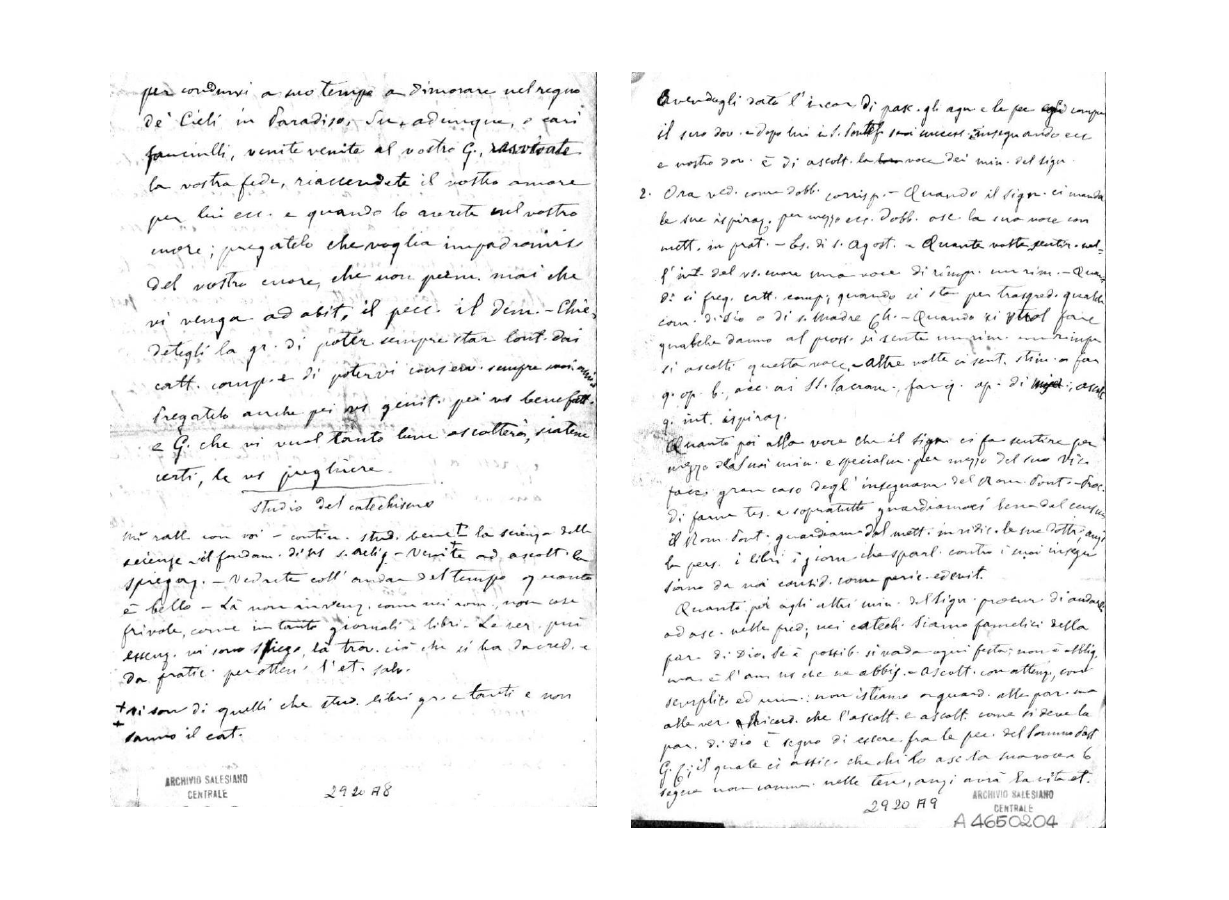 per condurvi a suo tempo a dimorare nel regno
de' Cieli in Paradiso. Su, adunque, o cari
fanciulli, venite venite al vostro G., ravvivate
la vostra fede, riaccendete il vostro amore
per lui ecc. e quando lo avrete nel vostro
cuore; pregatelo che voglia impadronirsi
del vostro cuore, che non perm. mai che
vi venga ad abit. il pecc. il dem. - Chie-
detegli la gr. di poter sempre star lont. dai
catt. comp. e di potervi conserv. sempre
Pregatelo anche pei vs genit. pei vs benefatt.
e G. che vi vuol tanto bene ascolterà, siatene
certi, le vs preghiere.
studio del catechismo
Mi rall. con voi - contin. stud. bene la scienza delle
scienze il fondam. di s. relig. - Venite ad ascolt. la
spiegaz. - Vedrete coll' andar del tempo quanto
è bello - Là non
frivole, come in tanti giornali e libri. Le ver. più
essenz. vi sono là trov. ciò che si ha da cred. e
da pratic. per otten. l'et. salv.
+ vi son di quelli che stud. libri gr. e tanti e non
+ sanno il cat.
ARCHIVIO SALESIANO
CENTRALE
2920 A8
Avendogli dato l'incar. di pasc. gli agn. e le pec.
il suo dov. e dopo lui i S. Pontef. suoi success. insegnando ecc
e vostro dov. è di ascolt. la voce dei min. del Sign.
2. Ora ved. come dobb. corrisp. - Quando il Sign. ci manda
le sue ispiraz. per mezzo ecc. dobb. asc. la sua voce con
mett. in prat. - Es. di s. Agost. - Quante volte sentir. nel-
l'int. del vs. cuore una voce di rimpr. un rim. - Quan-
di si freq. catt. comp; quando si sta per trasgred. qualche
com. di Dio o di s. Madre Ch. - Quando si vuol fare
qualche danno al pross. si sente un rim. un rimpr.
si ascolti questa voce, - altre volte ci sent. stim. a far
q. op. b., acc. ai SS. Sacram., far q. op. di
q. int. ispiraz.
Quanto poi alla voce che il Sign. ci fa sentire per
mezzo de' suoi min. e specialm. per mezzo del suo Vic.
facc. gran caso degl' insegnam. del Rom. Pont. -
di farne tes. e sopratutto guardiamoci bene dal
il Rom. Pont. guardiam. dal mett. in ridic. le sue dottr.
le pers. i libri i giorn. che sparl. contro i suoi insegn.
siano da noi consid. come peric. ed evit.
Quanto poi agli altri min. del Sign. procur. di andare
ad asc. nelle pred; nei catech. Siamo famelici della
par. di Dio. Se è possib. si vada ogni festa; non è obblig.
ma è l'an. ns che ne abbis. - Ascolt. con attenz. con
semplic. ed umil. non istiamo a guard. alle par. ma
alle ver. Ricord. che l'ascolt. e ascolt. come si deve la
par. di Dio è segno di essere fra le pec. del Sommo Past.
G. C; il quale ci assic. che chi lo asc. la sua voce e lo
segue non camm. nelle ten, anzi avrà la vita et.
2920 A9
ARCHIVIO SALESIANO
CENTRALE
A4650204